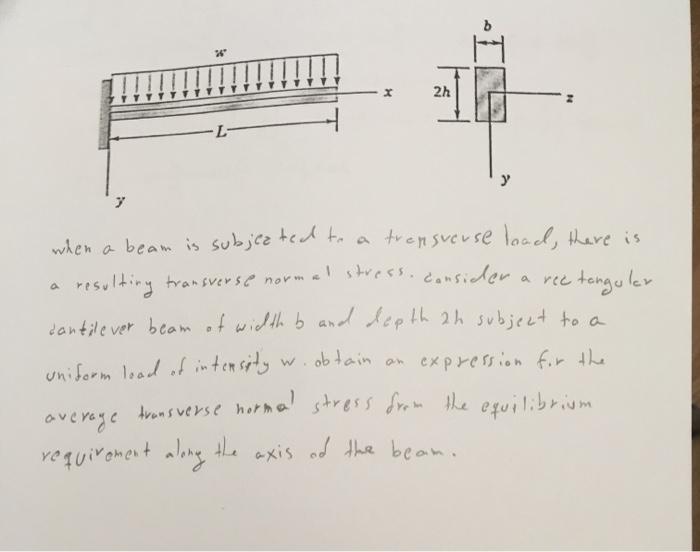 w
b
x
2h
z
L
y
y
when a beam is subjected to a transverse load, there is
a resulting transverse normal stress. consider a rectangular
cantilever beam of width b and depth 2h subject to a
uniform load of intensity w. obtain an expression for the
average transverse normal stress from the equilibrium
requirement along the axis od the beam.